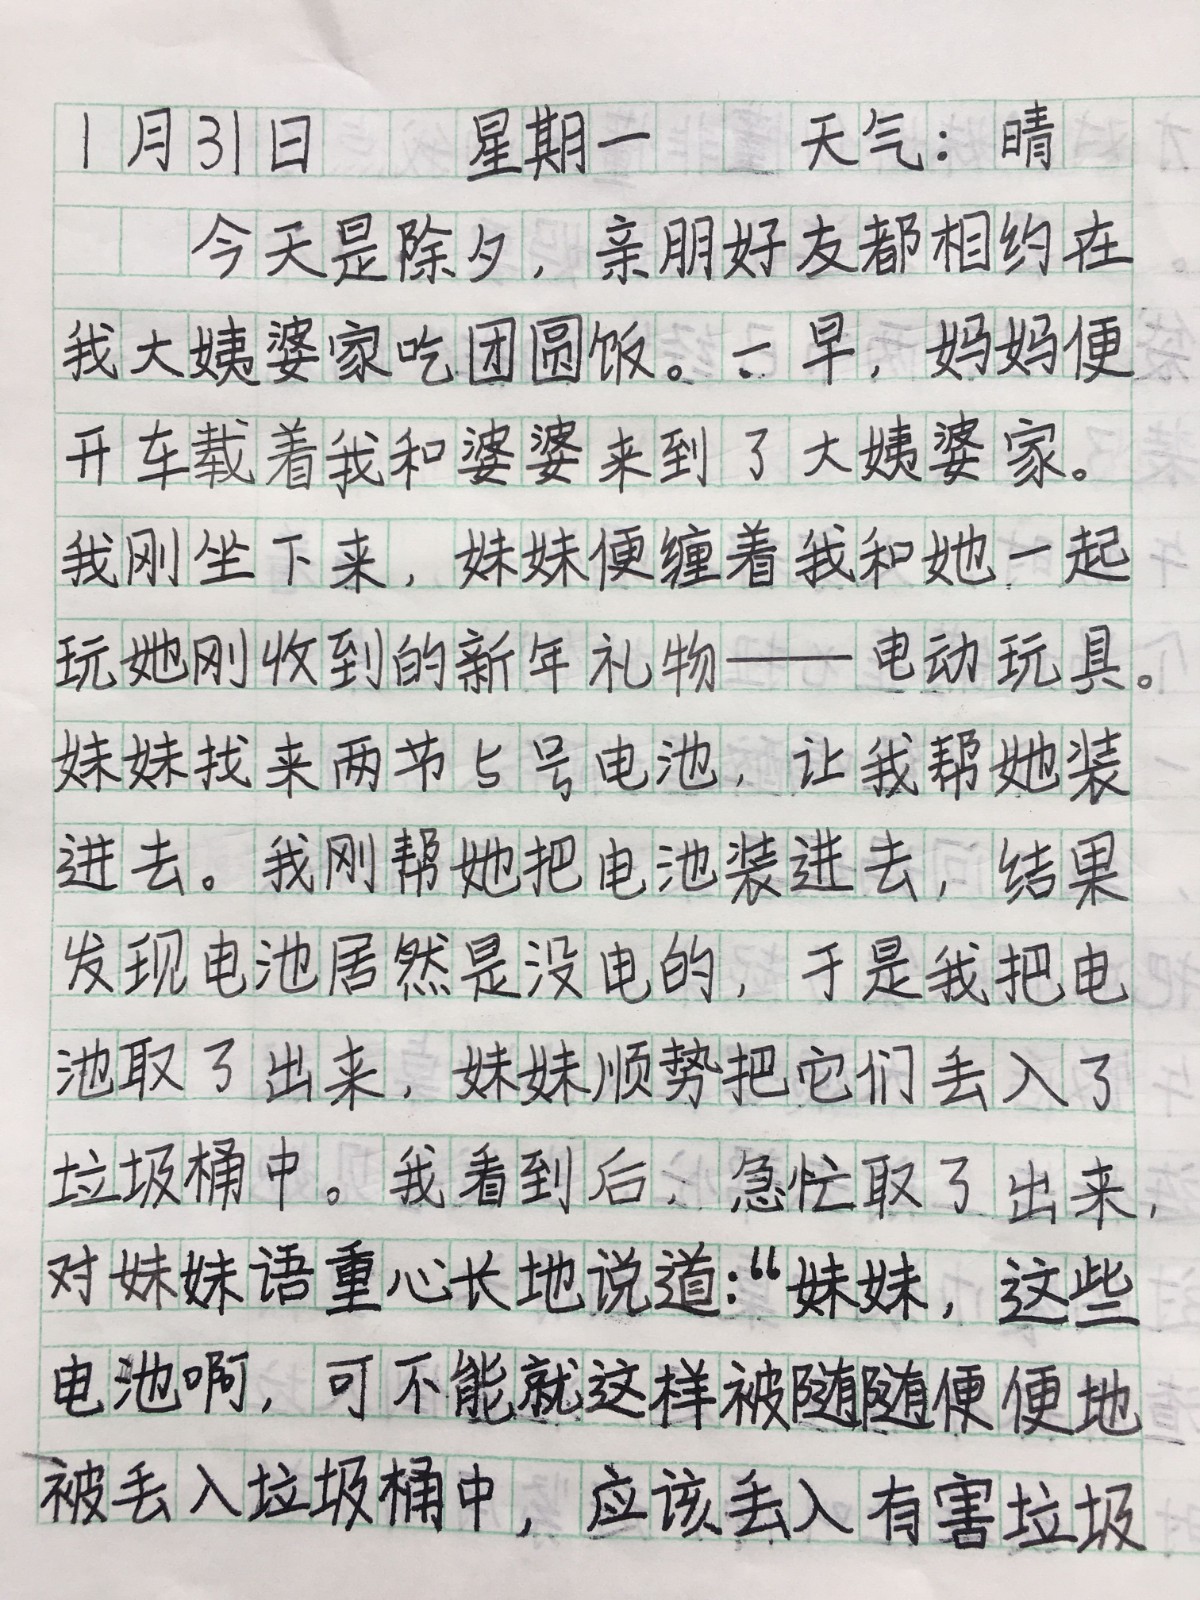 1月31日 星期一 天气：晴
今天是除夕，亲朋好友都相约在
我大姨婆家吃团圆饭。一早，妈妈便
开车载着我和婆婆来到了大姨婆家。
我刚坐下来，妹妹便缠着我和她一起
玩她刚收到的新年礼物——电动玩具。
妹妹找来两节5号电池，让我帮她装
进去。我刚帮她把电池装进去，结果
发现电池居然是没电的，于是我把电
池取了出来，妹妹顺势把它们丢入了
垃圾桶中。我看到后，急忙取了出来，
对妹妹语重心长地说道：“妹妹，这些
电池啊，可不能就这样被随随便便地
被丢入垃圾桶中，应该丢入有害垃圾